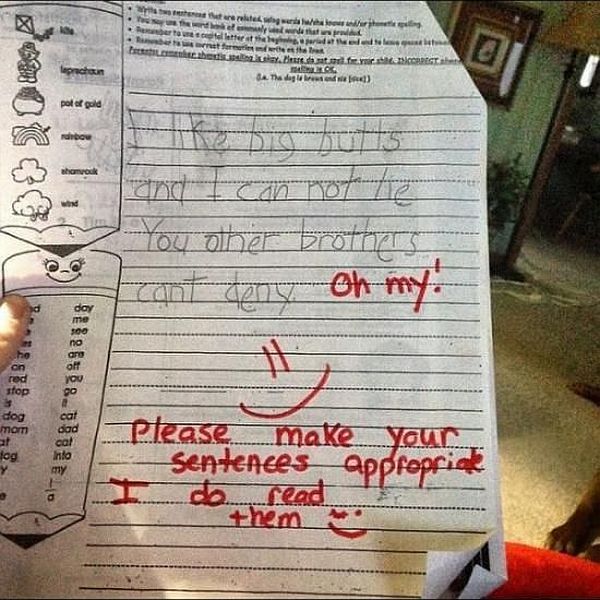 Write two sentences that are related, using words he/she knows and/or phonetic spelling.
You may use the word bank of commonly used words that are provided.
Remember to use a capital letter at the beginning, a period at the end and to leave spaces between
Remember to use correct formation and write on the lines
Parents: remember phonetic spelling is okay. Please do not spell for your child. INCORRECT
spelling is OK.
(i.e. The dog is brown and nis [nice])
kite
leprechaun
pot of gold
rainbow
shamrock
wind
I like big butts
and I can not lie
You other brothers
cant deny
Oh my!
day
me
see
no
he are
on off
red you
stop go
is it
dog cat
mom dad
at eat
into
my
I
a
Please make your
sentences appropriate
I do read
them